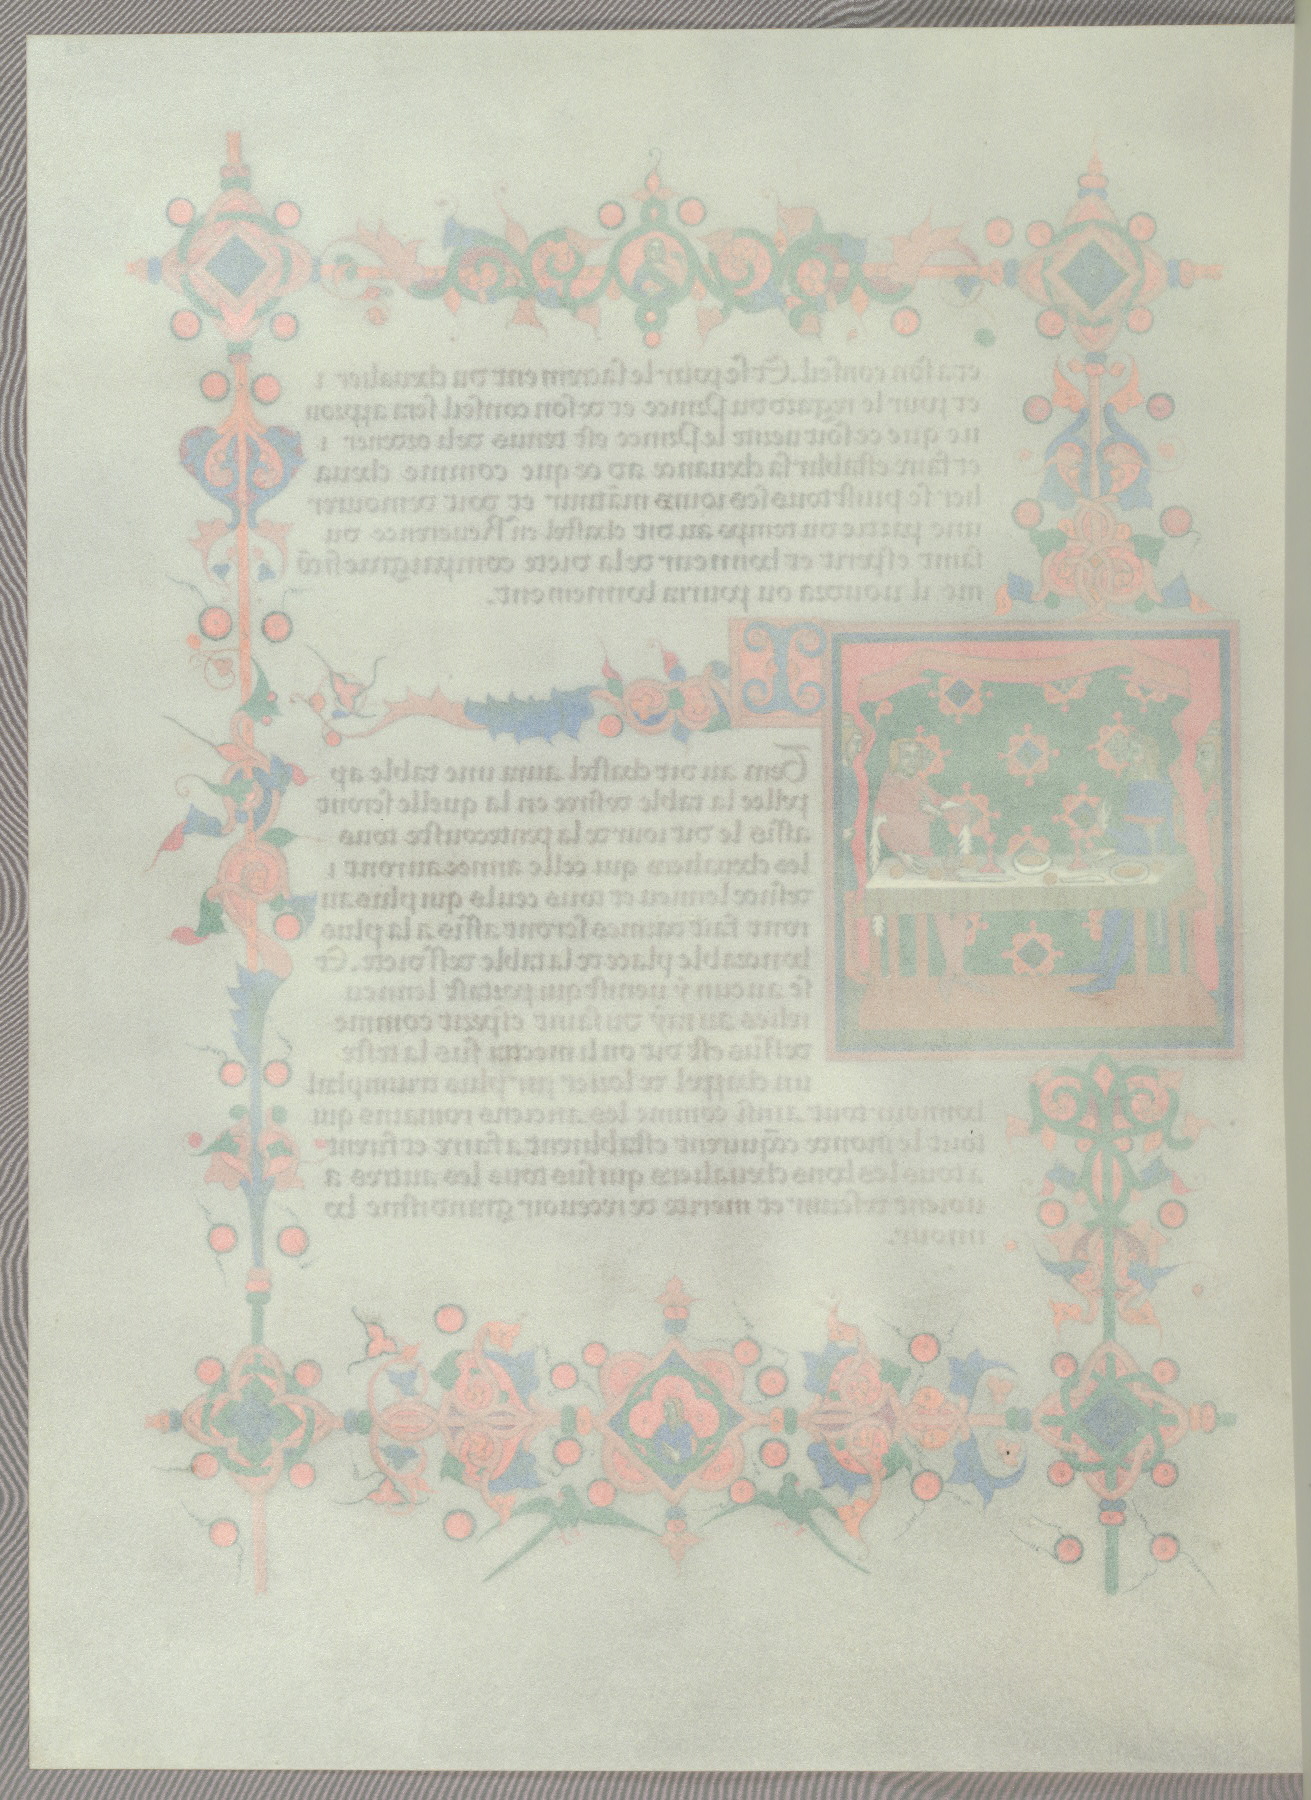 et a son conseil. Et se pour le sacrement du cheualier ⁊
et pour le regart du Prince et de son conseil sera approu
ue que ce soit uerite le Prince est tenus de li
et faire establir sa cheuance ad ce que comme cheua
lier se puisse tous ses iours et doit demourer
une partie du temps au dit chastel en Reuerence du
saint esperit et honneur de la dicte compaignie si co
me il uouldra ou pourra bonnement.
I
Item au dit chastel aura une table ap
pellee la table desiree en la quelle seront
assis le dit iour de la pentecouste tous
les cheualiers qui celle annee auront ⁊
deslie le neu et tous ceuls qui plus au
ront fait darmes seront assis a la plus
honorable place de la table dessusdicte. Et
se aucun y uenist qui portast le neu
relies au ray du saint esperit comme
dessus est dit on li mectra sus la teste
un chappel de lorier par plus triumphal
honneur tout ainsi comme les anciens romains qui
tout le monde conquirent establirent a faire et firent
a tous les bons cheualiers qui sus tous les autres a
uoient desseruir et merite de receuoir grandisime ho
nnour.